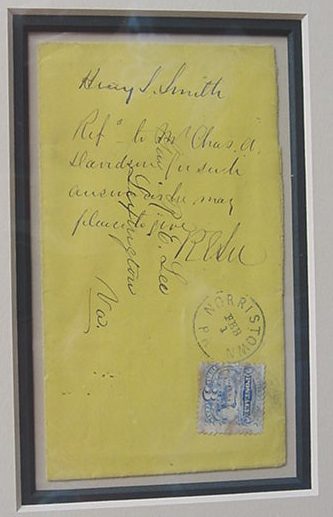 Henry S. Smith
Ref^d to Mr Chas. A.
Davidson for such
answer as he may
please to give
R E Lee
Genl R. E. Lee
Lexington
Va.
NORRISTOWN
FEB
1
PA
3